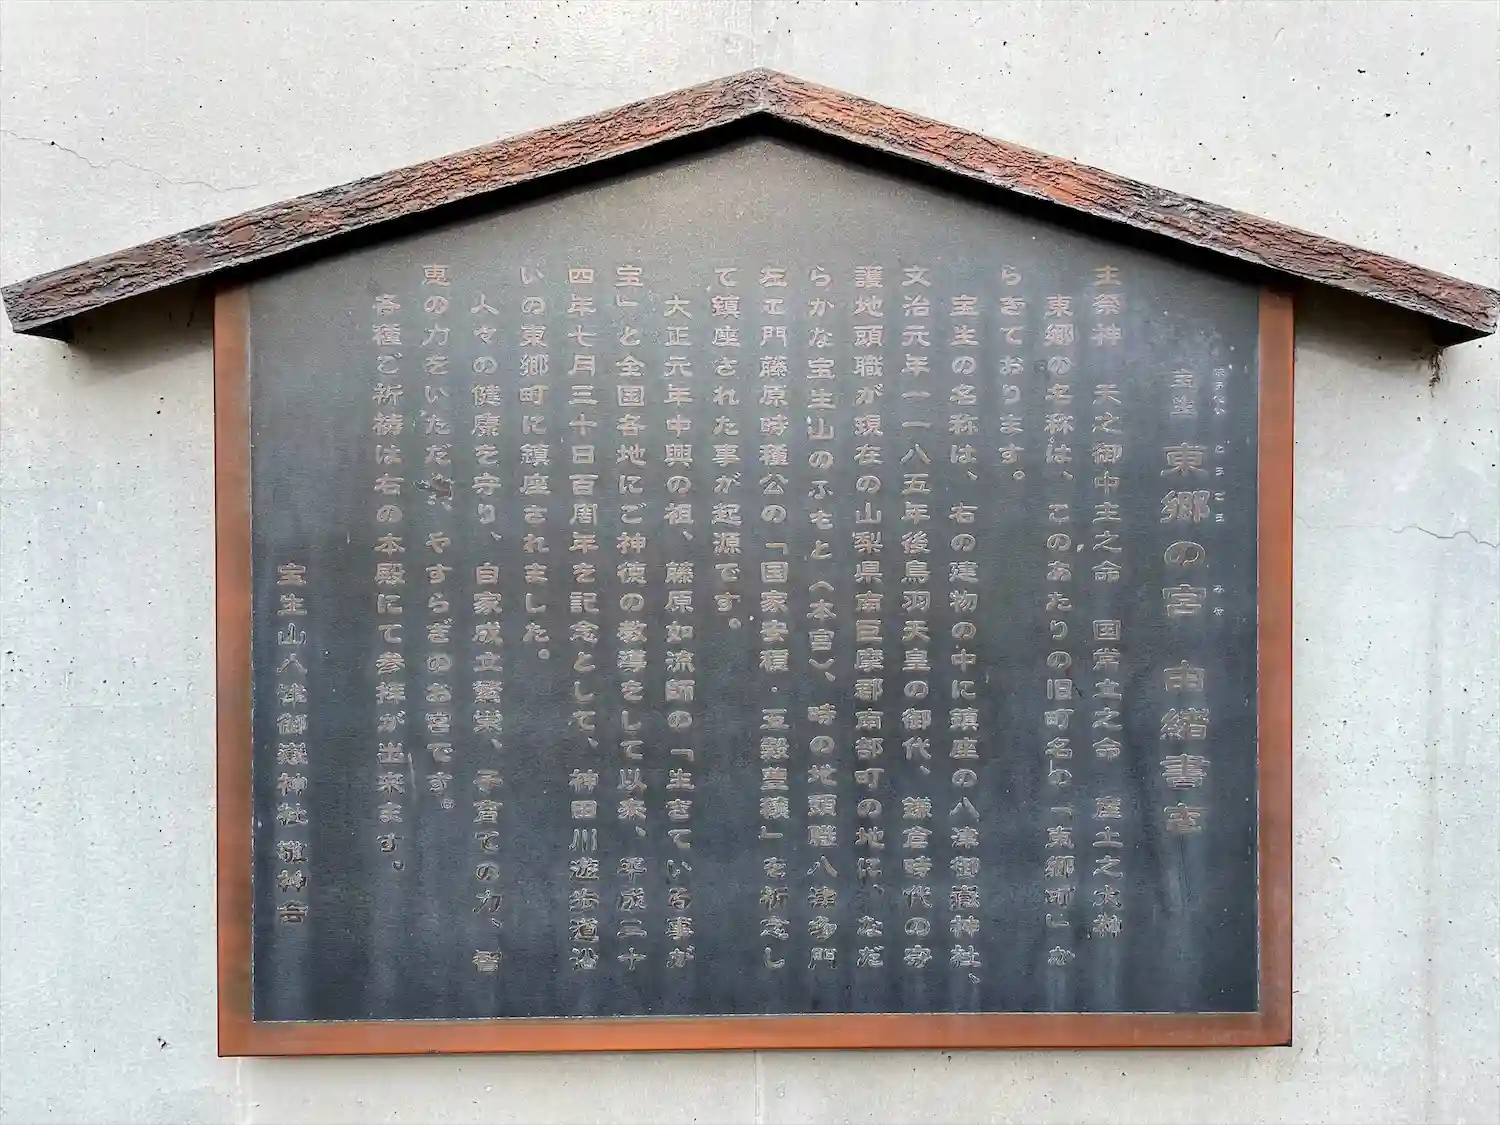 宝生 東郷の宮 由緒書き
主祭神 天之御中主之命 国常立之命 産土之大神
東郷の名称は、このあたりの旧町名の「東郷町」か
らきております。
宝生の名称は、右の建物の中に鎮座の八津御嶽神社、
文治元年一一八五年後鳥羽天皇の御代、鎌倉時代の守
護地頭職が現在の山梨県南巨摩郡南部町の地に、なだ
らかな宝生山のふもと(本宮)、時の地頭職八津多門
左ヱ門藤原時種公の「国家安穏・五穀豊穣」を祈念し
て鎮座された事が起源です。
大正元年中興の祖、藤原如流師の「生きている事が
宝」と全国各地にご神徳の教導をして以来、平成二十
四年七月三十日百周年を記念として、神田川遊歩道沿
いの東郷町に鎮座されました。
人々の健康を守り、自家成立繁栄、子育ての力、智
恵の力をいただき、やすらぎのお宮です。
各種ご祈祷は右の本殿にて参拝が出来ます。
宝生山八津御嶽神社 敬神会